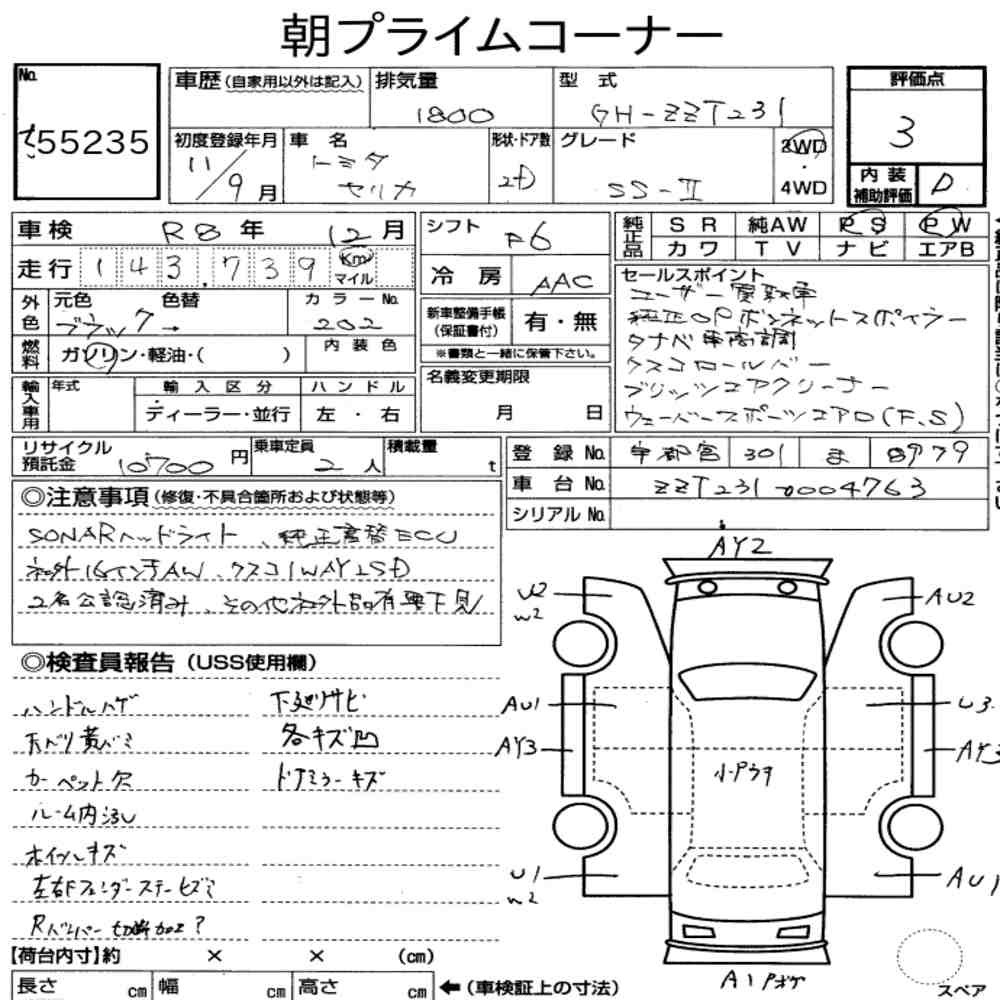 朝プライムコーナー
No.
55235
車歴(自家用以外は記入)
排気量
1800
型 式
GH-ZZT231
評価点
3
初度登録年月
11/9月
車 名
トヨタ
セリカ
形状・ドア数
2D
グレード
SS-Ⅱ
2WD
・
4WD
内 装
補助評価
D
車検 R8年 12月
シフト F6
純正品
SR 純AW PS PW
カワ TV ナビ エアB
走行 143,739 Km マイル
冷 房 AAC
セールスポイント
ユーザー買取車
純正OPボンネットスポイラー
タナベ車高調
クスコロールバー
ブリッツエアクリーナー
ウェーバースポーツエアロ(F.S)
外色
元色 色替
ブラック→
カラーNo.
202
新車整備手帳
(保証書付)
有・無
※書類と一緒に保管下さい。
燃料
ガソリン・軽油・( )
内装色
名義変更期限
月 日
輸入車用
年式
輸入区分
ディーラー・並行
ハンドル
左 ・ 右
リサイクル
預託金
10700円
乗車定員
2人
積載量
t
登 録 No. 宇都宮 301 ま 8979
車 台 No. ZZT231-0004763
シリアル No.
◎注意事項(修復・不具合箇所および状態等)
SONARヘッドライト、純正書替ECU
社外16インチAW、クスコ1WAYLSD
2名公認済み、その他社外品有要下見
◎検査員報告(USS使用欄)
ハンドルハゲ
天ベリ黄バミ
カーペット欠
ルーム内汚れ
ホイールキズ
左右Fフェンダーステーヒズミ
Rバンパー切断加工?
下廻りサビ
各キズ凹
ドアミラーキズ
AY2
U2
W2
AU2
AU1
U3
AY3
AY3
小Pウヲ
U1
W2
AU1
A1 Pボケ
スペア
【荷台内寸】約 × × (cm)
長さ cm 幅 cm 高さ cm
←(車検証上の寸法)